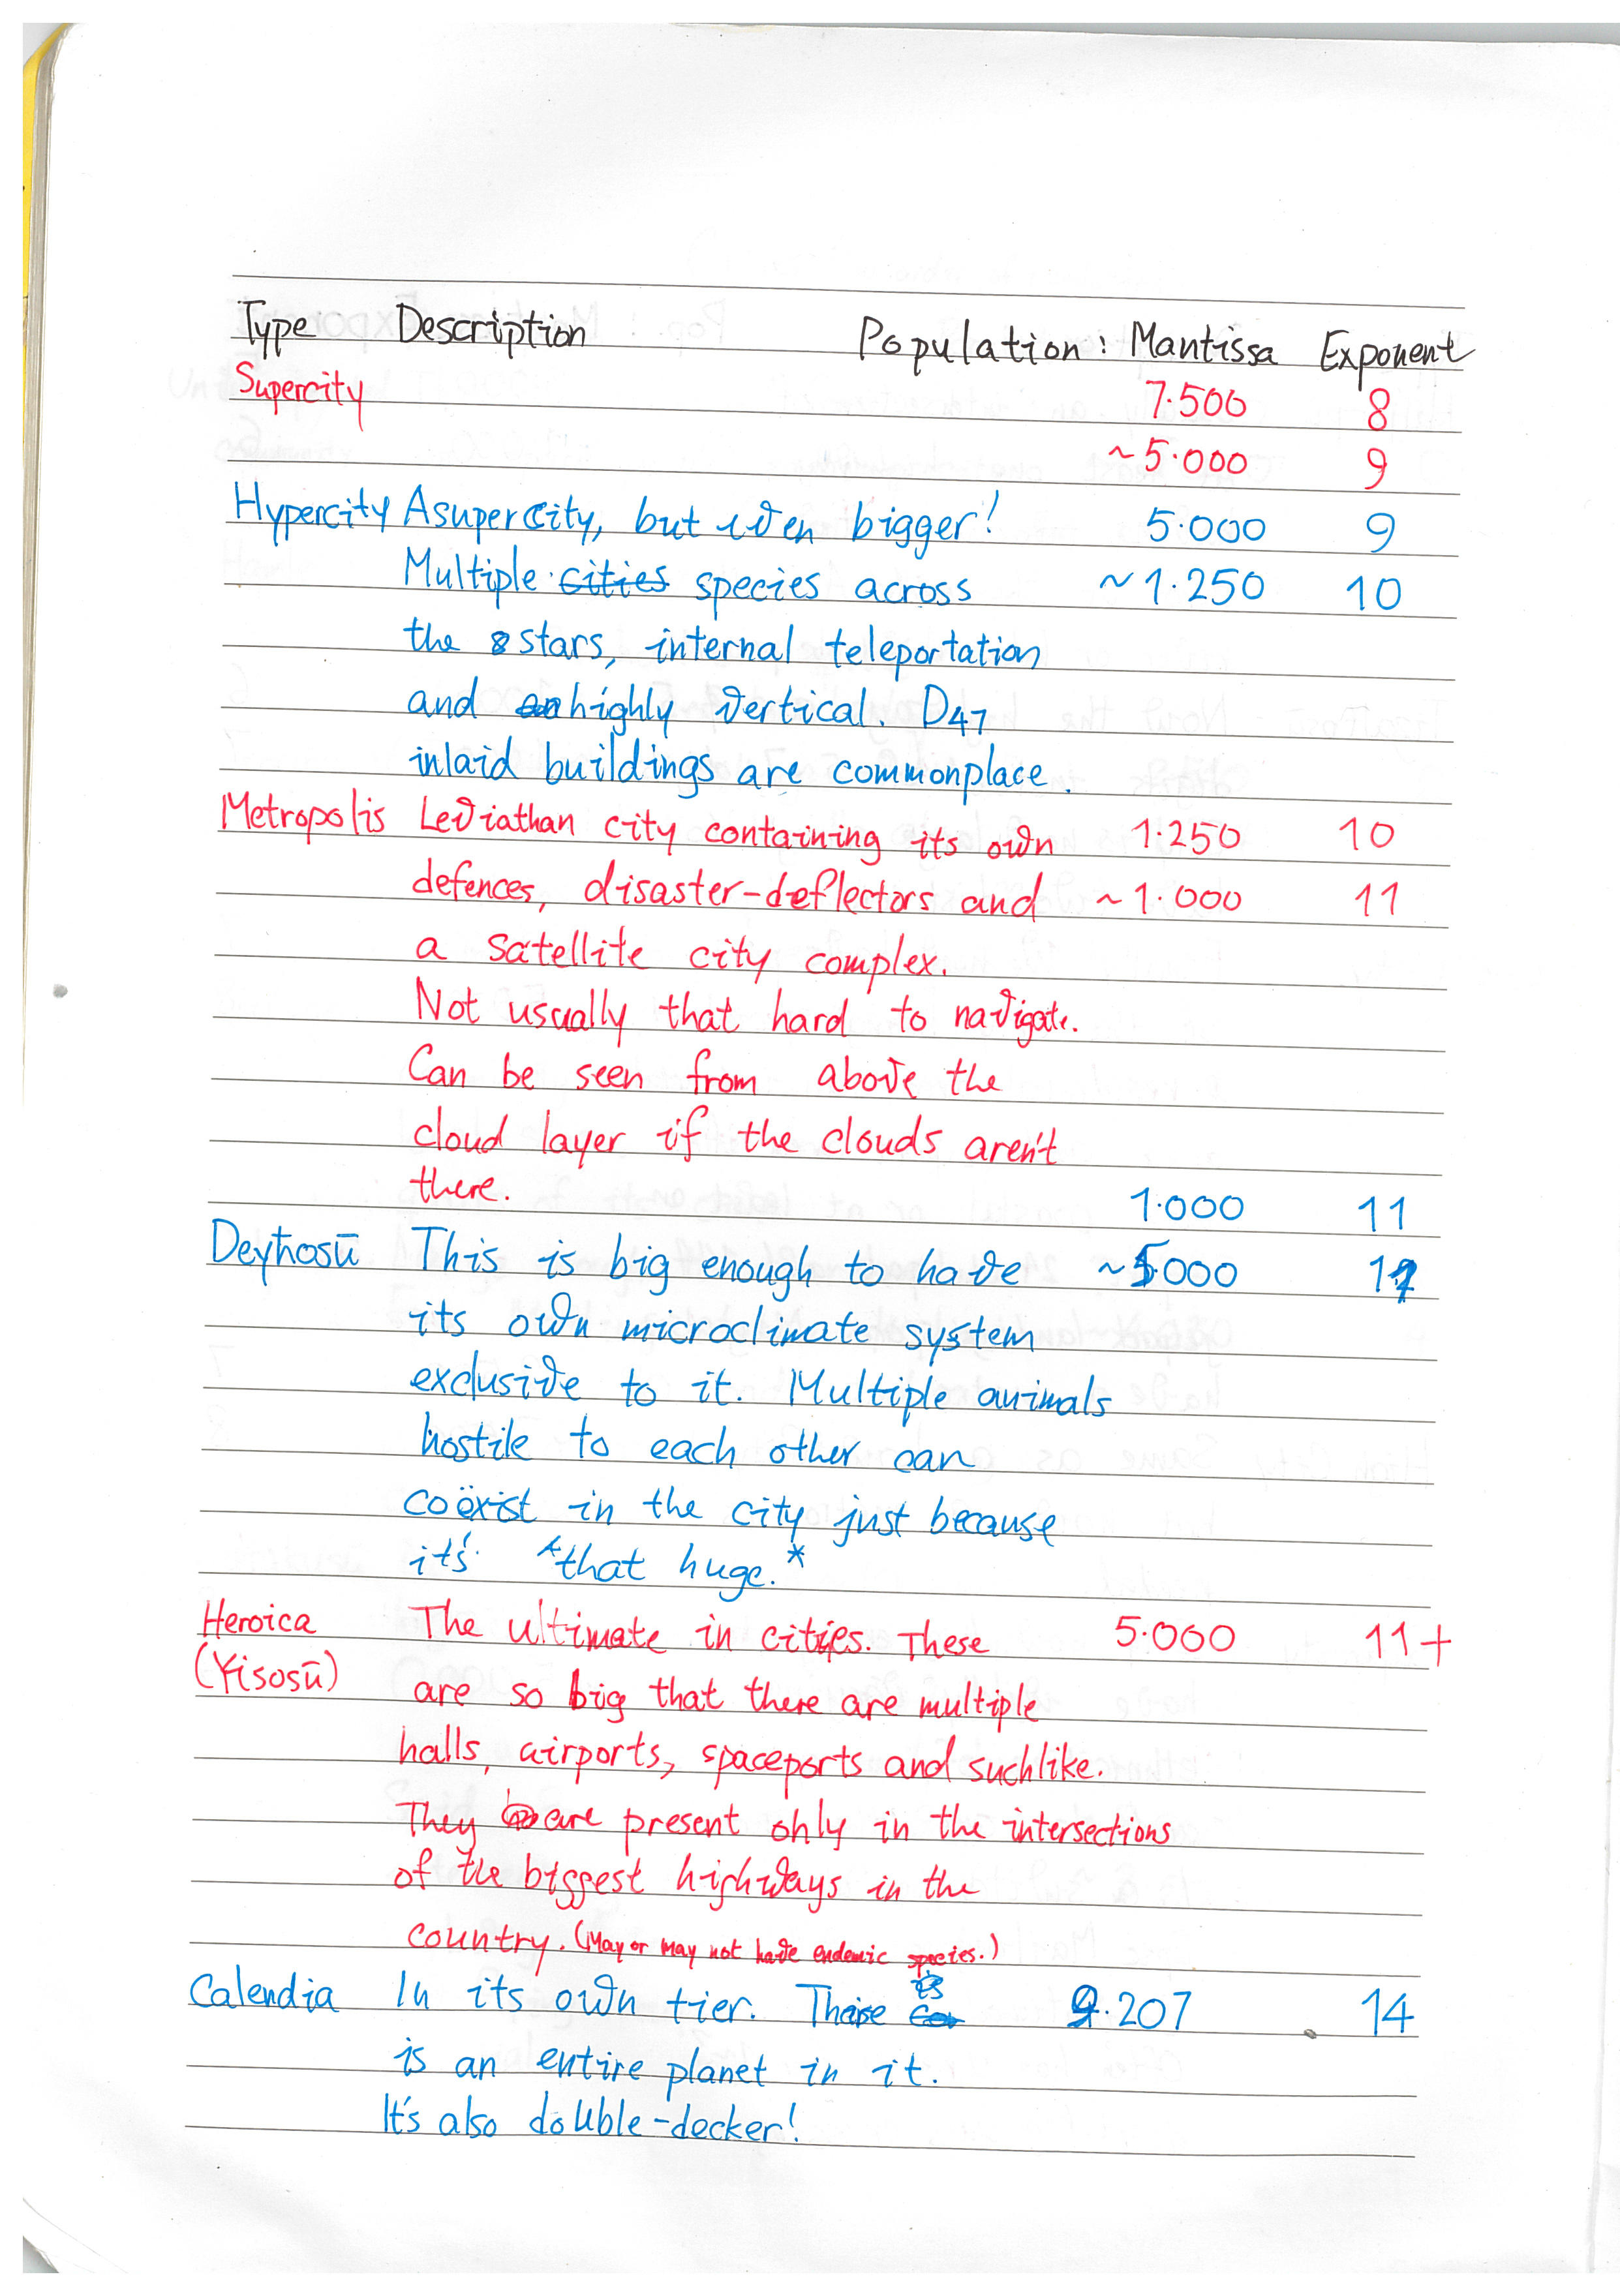 Type Description Population: Mantissa Exponent
Supercity 7.500 8
~5.000 9
Hypercity A supercity, but even bigger! 5.000 9
Multiple cities species across ~1.250 10
the stars, internal teleportation
and highly vertical. D47
inlaid buildings are commonplace.
Metropolis Leviathan city containing its own 1.250 10
defences, disaster-deflectors and ~1.000 11
a satellite city complex.
Not usually that hard to navigate.
Can be seen from above the
cloud layer if the clouds aren't
there. 1.000 11
Deyħosū This is big enough to have ~5.000 11
its own microclimate system
exclusive to it. Multiple animals
hostile to each other can
coëxist in the city just because
it's *that huge.*
Heroica The ultimate in cities. These 5.000 11+
(Yisosū) are so big that there are multiple
halls, airports, spaceports and suchlike.
They are present only in the intersections
of the biggest highways in the
country. (May or may not have endemic species.)
Calendia In its own tier. There .207 14
is an entire planet in it.
It's also double-decker!